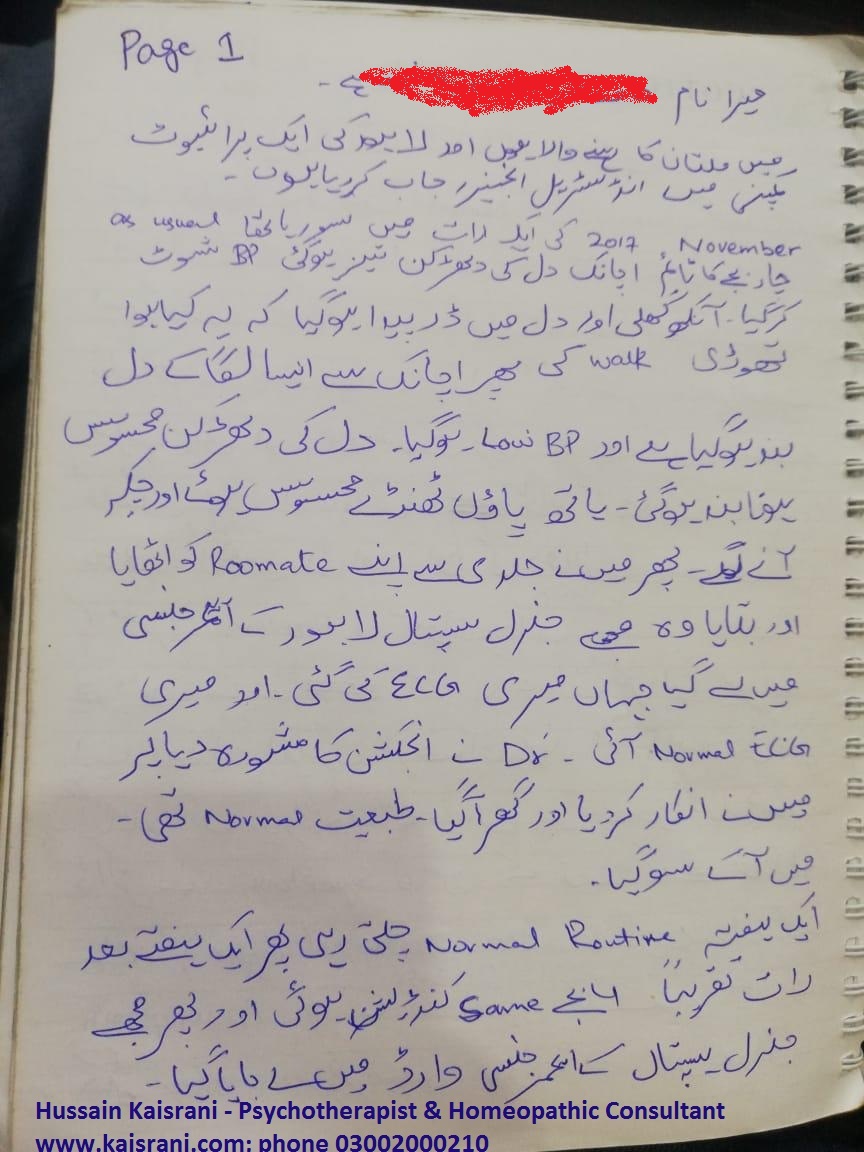 Page 1
میرا نام ہے۔
میں ملتان کا رہنے والا ہوں اور لاہور کی ایک پرائیوٹ
کمپنی میں انڈسٹریل انجینیر جاب کر رہا ہوں۔
November, 2017 کی ایک رات میں سو رہا تھا as usual
چار بجے کا ٹایم اچانک دل کی دھڑکن تیز ہوگئ BP شوٹ
کر گیا۔ آنکھ کھلی اور دل میں ڈر پیدا ہوگیا کہ یہ کیا ہوا
تھوڑی walk کی پھر اچانک سے ایسا لگا کے دل
بند ہوگیا ہے اور Low BP ہوگیا۔ دل کی دھڑکن محسوس
ہونا بند ہوگئ۔ ہاتھ پاؤں ٹھنڈے محسوس ہوئے اور چکر
آنے لگے۔ پھر میں نے جلدی سے اپنے Roomate کو اٹھایا
اور بتایا وہ مجھے جنرل ہسپتال لاہور کے ایمرجنسی
میں لے گیا جہاں میری ECG کی گئی۔ اور میری
ECG Normal آئی۔ Dr نے انجکشن کا مشورہ دیا پر
میں نے انکار کر دیا اور گھر آگیا۔ طبیعت Normal تھی۔
میں آکے سوگیا۔
ایک ہفتہ Normal Routine چلتی رہی پھر ایک ہفتے بعد
رات تقریباً بجے Same کنڈیشن ہوئی اور پھر مجھے
جنرل ہسپتال کے ایمرجنسی وارڈ میں لے جایا گیا۔
Hussain Kaisrani - Psychotherapist & Homeopathic Consultant
www.kaisrani.com: phone 03002000210